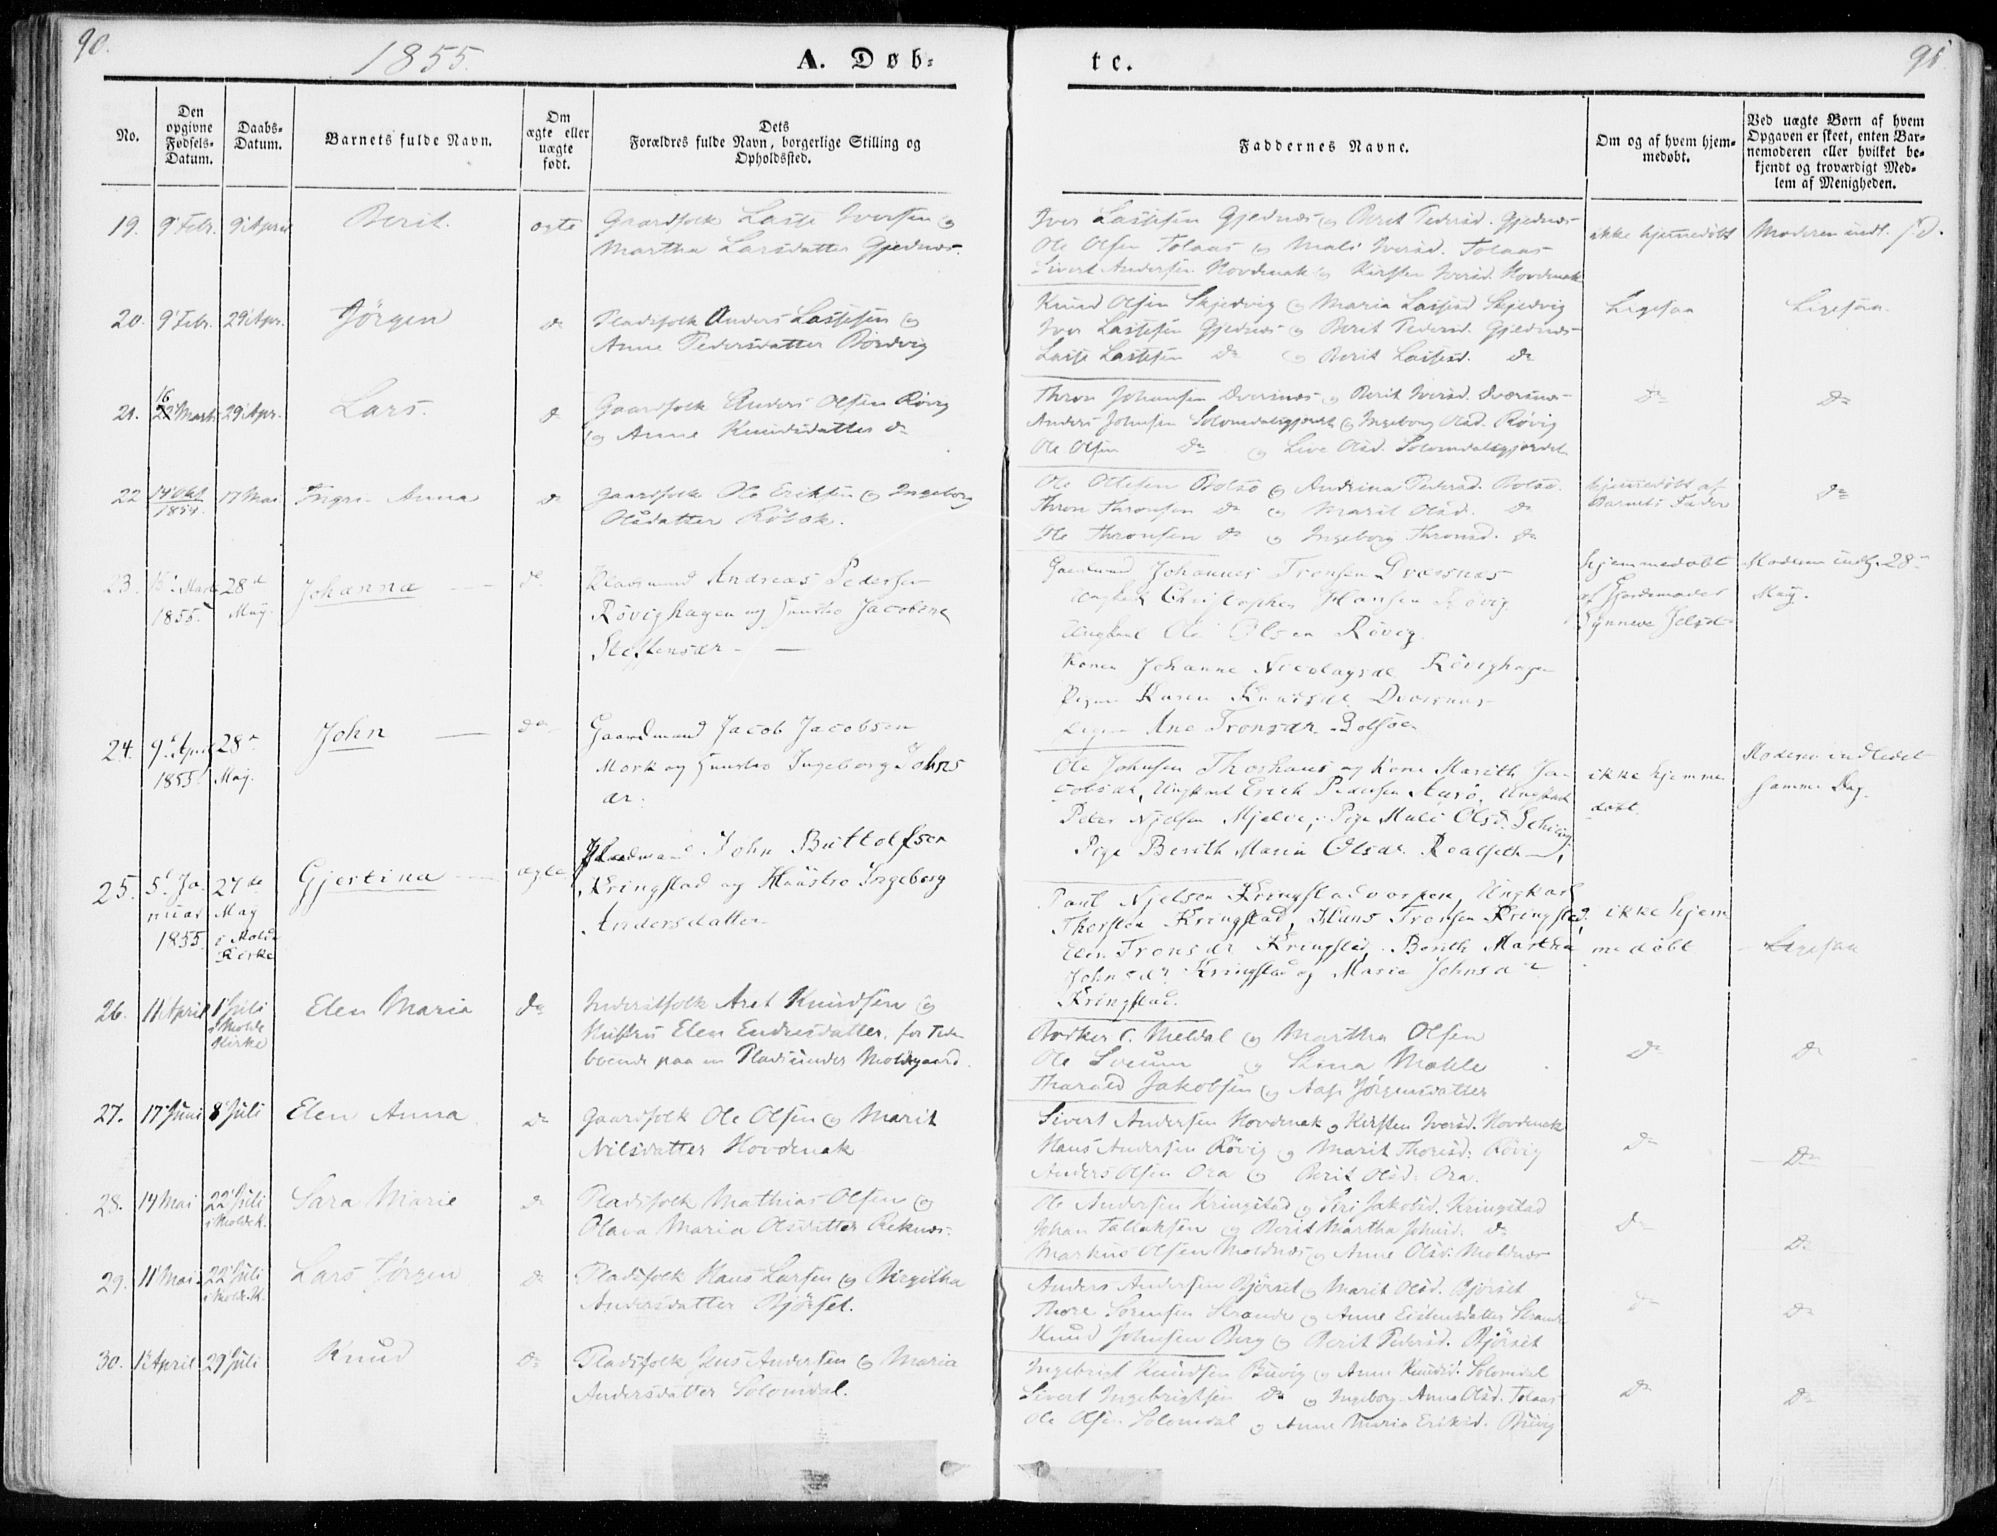 90.
1855.
A. Døb-
te.
91
No.
Den opgivne Fødsels-Datum.
Daabs-Datum.
Barnets fulde Navn.
Om ægte eller uægte født.
Dets Forældres fulde Navn, borgerlige Stilling og Opholdssted.
Faddernes Navne.
Om og af hvem hjem-medøbt.
Ved uægte Børn af hvem Opgaven er skeet, enten Bar-nemoderen eller hvilket be-kjendt og troværdigt Med-lem af Menigheden.
19. 9' Febr. 9' April Berit. ægte Gaardfolk Lasse Iversen og
Martha Larsdatter Gjednæs.
Iver Lassesen Gjednæs og Berit Pedersd. Gjednæs
Ole Olsen Tolaas og Mali Iversd. Tolaas
Sivert Andersen Hovdenak og Kirsten Iversd. Hovdenak
ikke hjemmedøbt
Moderen indl. s. D.
20. 9' Febr. 29' Apr. Jørgen do Pladsfolk Anders Lassesen og
Anne Pedersdatter
Knud Olsen Skjedvig og Maria Lassesd Skjedvig
Iver Lassesen Gjednæs og Berit Pedersd. Gjednæs
Lasse Lassesen do og Berit Lassesd. do
Ligesaa
Ligesaa.
21. 16 Marts 29' Apr. Lars. do Gaardfolk Anders Olsen Røvig
og Anne Knudsdatter do
Thron Johansen Dversnæs og Berit Iversd. Dversnæs
Anders Johnsen Solomdalsgjerdet og Ingeborg Olsd. Røvig
Ole Olsen do og Live Olsd. Solomdalsgjerdet
do
do
22 14' Okt. 1854. 17 Mai Ingri Anna do Gaardfolk Ole Eriksen og Ingeborg
Olsdatter Røbæk.
Ole Olsen Bolsø og Andrina Pedersd. Bolsø.
Thron Thronsen do og Marit Olsd. do
Ole Thronsen do og Ingeborg Thronsd. do
hjemmedøbt af
Barnets Fader
do
23. 15' Marts 1855. 28de May. Johanna do Pladsmand Andreas Pedersen
Røvighagen og Hustro Jacobine
Steffensdr
Gaardmand Johannes Tronsen Dversnæs
Ungkarl Christopher Hansen Røvig
Ungkarl Ole Olsen Røvig.
Konen Johanne Nicolaysdr Røvighagen
Pigen Karen Knudsdr Dversnæs
Pigen Ane Tronsdr Bolsøen
hjemmedøbt
af Gjordemoder
Synneve
Moderen indl. 28de
May.
24. 9' April 1855. 28de May. John do Gaardmand Jacob Jacobsen
Mork og Hustro Ingeborg Johns
dr.
Ole Johnsen Thorhaus og Kone Marith Ja-
cobsdr, Ungkarl Erich Pedersen Aarø, Ungkarl
Peder Njelsen Mjelve, Pige Mali Olsd.
Pige Berith Maria Olsdr. Realfseth
ikke hjemme
døbt.
Moderen indledet
samme Dag.
25. 5' Januar 1855. 27de May i Molde Kirke Gjertina ægte Pladsmand John Buttolfsen
Kringstad og Hustro Ingeborg
Andersdatter
Paul Njelsen Kringstad, Ungkarl
Thorsten Kringstad, Hans Tronsen Kringstad,
Elen Tronsdr Kringstad, Berith Martha
Johnsdr. Kringstad og Maria Johnsdr
Kringstad.
ikke hjem
medøbt
Ligesaa
26. 11 April 1' Juli i Molde Kirke Elen Maria do Inderstfolk Aret Knudsen og
Hustru Elen Endresdatter, for Tiden
boende paa en Plads under Moldegaard.
Bødker C. Meldal og Martha Olsen
Ole Sveum og Stina Mokle
Tharald Jakobsen og Jørgensdatter
do
do
27. 17' Juni 8' Juli Elen Anna do Gaardfolk Ole Olsen og Marit
Nilsdatter Hovdenak
Sivert Andersen Hovdenak og Kirsten Iversd. Hovdenak
Hans Andersen Røvig og Marit Thorsd. Røvig
Anders Olsen Ora og Berit Olsd. Ora.
do
do
28. 14 Mai 22' Juli i Molde K. Sara Marie do Pladsfolk Mathias Olsen og
Olava Maria Olsdatter Reknæs.
Ole Andersen Kringstad og Siri Jakobsd. Kringstad
Johan Tollaksen og Berit Martha Johnsd. do
Markus Olsen Moldnæs og Anne Olsd. Moldnæs
do
do
29. 11' Mai 22' Juli i Molde K. Lars Jørgen do Pladsfolk Hans Larsen og Birgitha
Andersdatter Bjørset.
Anders Andersen Bjørset og Marit Olsd. Bjørset
Thore Sørensen Strande og Anne Strande
Knud Johnsen Berg og Berit Pedersd. Bjørset
do
do
30. 1' April 29' Juli Knud do Pladsfolk Jens Andersen og Maria
Andersdatter Solomdal.
Ingebrigt Knudsen Buvig og Anne Knudsd. Solomdal
Sivert Ingebrigtsen do og Ingeborg Anna Olsd. Tolaas
Ole Olsen Solomdal og Anne Maria Eriksd. Buvig
do
do